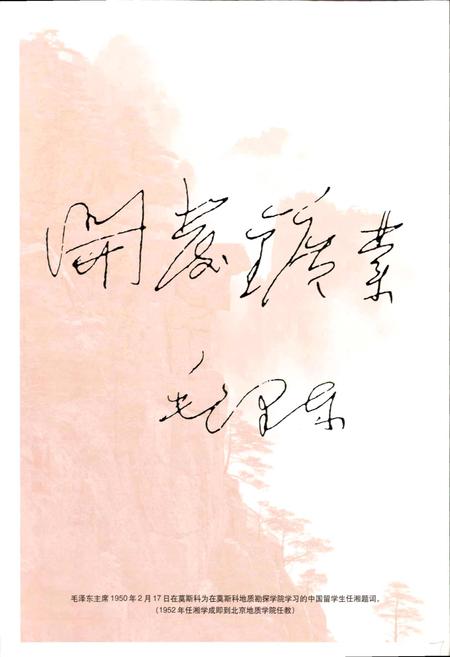 開發鑛業
毛泽东
毛泽东主席1950年2月17日在莫斯科为在莫斯科地质勘探学院学习的中国留学生任湘题词。
（1952年任湘学成即到北京地质学院任教）